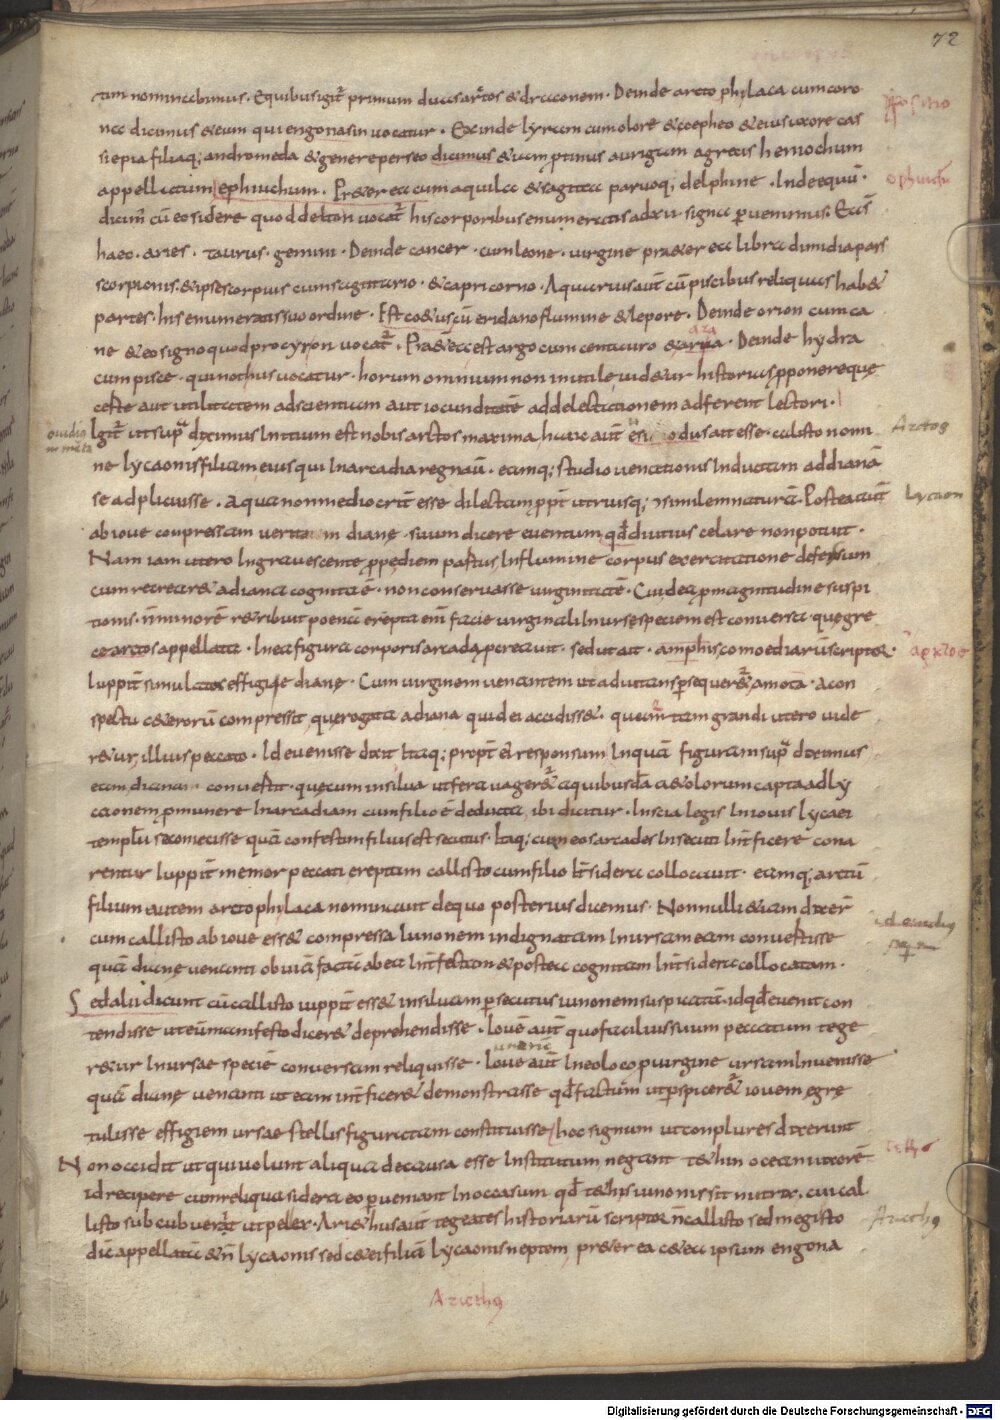 72
tim nominabimus. Equibus igit̄ primum duas arctos & draconem. Deinde arcto phylaca cum coro
na dicimus & eum qui engonasin vocatur. Exinde lyram cum olore & coepheo & eius uxore cas
siepia filiaq; andromeda & genere perseo dicimus & iam ptinus aurigam a grecis heniochum
appellatum ephiuchum. Praeterea cum aquila & sagitta paruoq; delphine. Inde equū.
dicim cū eo sidere quod delton vocat̄ his corporibus enumeratis ad xii signa puenimus. Ea s̄
haec. aries. taurus. gemini. Deinde cancer. cum leone. uirgine praeterea libra dimidia pars
scorpionis. & ipse scorpius cum sagittario. & capricorno. Aquarius aut̄ cū piscibus reliquas hab&
partes. his enumeratis suo ordine. Est co&us cū eridano flumine & lepore. Deinde orion cum ca
ne & eo signo quod procyron vocat̄. Praeterea est argo cum centauro & arua. Deinde hydra
ara
cum pisce. qui nothius uocatur. horum omnium non inutile uid&ur historias pponere quę
certe aut utilitatem ad scientiam aut iocunditatē ad delectationem adferent lectori.
Igit̄ ut sup dximus Initium est nobis arctos maxima. hanc aut̄ esiodus ait esse. calisto nomi
ne lycaonis filiam eius qui In arcadia regnau. eamq; studio uenationis Inductam ad dianā
se adplicuisse. a qua non mediocrit esse dilectam ppt utriusq; similem naturā. Postea aut̄
ab ioue conpressam uerita m dianę. suum dicere euentum qđ diutius celare non potuit.
Nam iam utero Ingrauescente ppe diem partus In flumine corpus exercitatione defessum
cum recrear& a diana cognita ē. non conseruasse uirginitatē. Cui dea p magnitudine suspi
tionis. n̄ minorē retribuit poenā erepta eni facie uirginali In urse speciem est conuersa. que gre
ce arctos appellata. In ea figura corporis arcadā pcreauit. sed ut ait. amphis comoediarū scriptor.
Iuppit simulatus effigię dianę. Cum uirginem uenantem ut adiutans psequer&ur amota. a con
spectu c&erorū compressit, que rogata a diana quid ei accidiss&. que am tam grandi utero uide
r&ur, illius peccato. Id euenisse dixit Itaq; propt ei responsum In quā figuram sup dximus
eam diana. conuertit. que cum in silua ut fera uager&ur a quibusdā a&olorum capta ad ly
caonem p munere In arcadiam cum filio ē deducta, ibi dicitur. Inscia legis In iouis lycaei
templū se coniecisse quā confestim filius est secutus. Itaq; cum eos arcades Insecuti Intficere cona
rentur Iuppit memor peccati ereptam callisto cum filio Int sidera collocauit. eamq; arctū
filium autem arctophylaca nominauit de quo posterius dicemus. Nonnulli etiam dxer̄
cum callisto ab ioue ess& compressa Iunonem indignatam In ursam eam conuertisse
quā diane uenanti obuiā factā ab ea Intfectam & postea cognitam Int sidera collocatam.
Sed alii dicunt cū callisto iuppit ess& in siluam psecutus iunonem suspicatā. id qđ euenit con
tendisse ut eū manifesto dicer& deprehendisse. Iouē aut̄ quo facilius suum peccatum tege
r&ur In ursae speciē conuersam reliquisse. Ioue aut̄ In eo loco p uirgine ursam Inuenisse
quā diane uenanti ut eam intficer& demonstrasse qđ factum ut pspicer&ur iouem ęgre
tulisse effigiem ursae stellis figuratam constituisse. hoc signum ut conplures dixerunt
Non occidit ut qui uolunt aliqua de causa esse Institutum negant tethin oceani uxorē
id recipere cum reliqua sidera eo pueniant In occasum qđ tethis iunonis sit nutrix. cui cal
listo sub cubuerat ut pelex. Ariethus aut̄ tegeates historiarū scriptor n̄ callisto sed megisto
dic appellatā & n̄ lycaonis sed c&ei filiā lycaonis neptem, pr&er ea c&ea ipsum engona
ppositio
ophiuchu
ouidi9
in meta
Arctos
Lycaon
ἄρκτος
id ouidi9
iunonē
Tethis
Arieth9
Arieth9
Digitalisierung gefördert durch die Deutsche Forschungsgemeinschaft - DFG